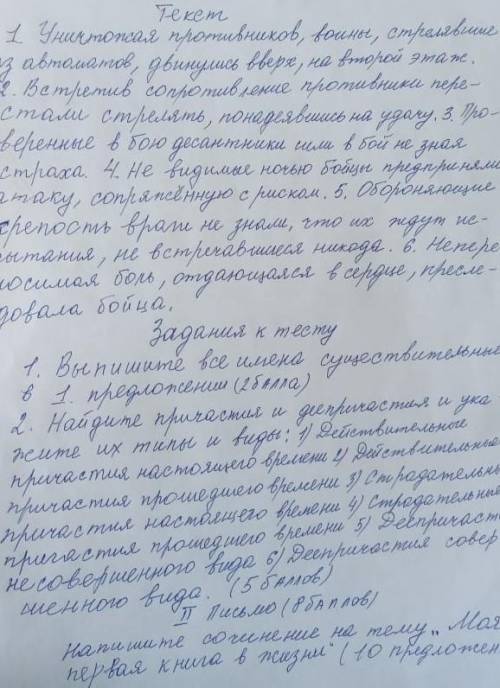 Текст
1. Уничтожая противников, воины, стрелявшие
з автоматов, двинулись вверх, на второй этаж.
2. Встретив сопротивление противники пере-
стали стрелять, понадеявшись на удачу. 3. Про-
веренные в бою десантники шли в бой не зная
страха. 4. Не видимые ночью бойцы предприняли
атаку, сопряжённую с риском. 5. Обороняющие
крепость враги не знали, что их ждут ис-
ытания, не встречавшиеся никогда. 6. Непере
носимая боль, отдающаяся в сердце, пресле-
довала бойца.
Задания к тесту
1. Выпишите все имена существительные
в 1. предложении (2 балла)
2. Найдите причастия и деепричастия и ука-
жите их типы и виды: 1) Действительные
причастия настоящего времени 2) Действительные
причастия прошедшего времени 3) Страдательны
причастия настоящего времени 4) Страдательные
пригастия прошедшего времени 5) Деепричаст
несовершенного вида 6) Деепричастия совер
шенного вида. (5 баллов)
II Письмо (8 баллов)
Напишите сочинение на тему „Моя
первая книга в жизни" (10 предложен